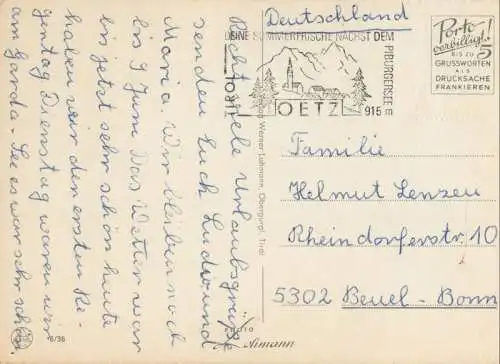 Deutschland
DEINE SOMMERFRISCHE NÄCHST DEM
PIBURGERSEE
OETZ
915 m
Porto
verbilligt!
BIS ZU 5
GRUSSWORTEN
ALS
DRUCKSACHE
FRANKIEREN
Recht viele Urlaubsgrüße
senden Euch Ludw. und
Maria. Wir bleiben noch
bis 9 Juni. Das Wetter war
bis jetzt sehr schön heute
haben wir den ersten Re-
gentag Dienstag waren wir
am Garda-See es war sehr schön
Familie
Helmut Lenzen
Rheindorferstr. 10
5302 Beuel-Bonn
Verlag Werner Lohmann, Obergurgl, Tirol
PHOTO
Aimann
6/36